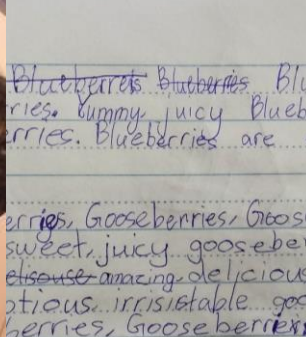 Blueberreis Blueberries Blu
rries. Yummy, juicy Blueb
erries. Blueberries are
erries, Gooseberries, Goos
sweet, juicy goosebe
elisouse amazing delicious
otious irrisistable goo
berries, Gooseberries